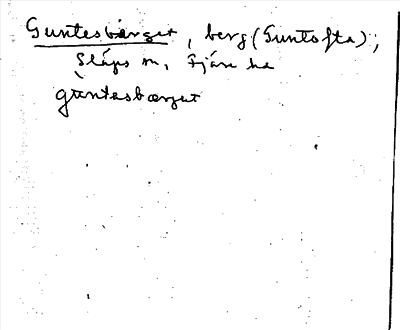 Guntesbärget, berg (Guntofta),
Släps sn, Fjäre hd
gùntasbærget